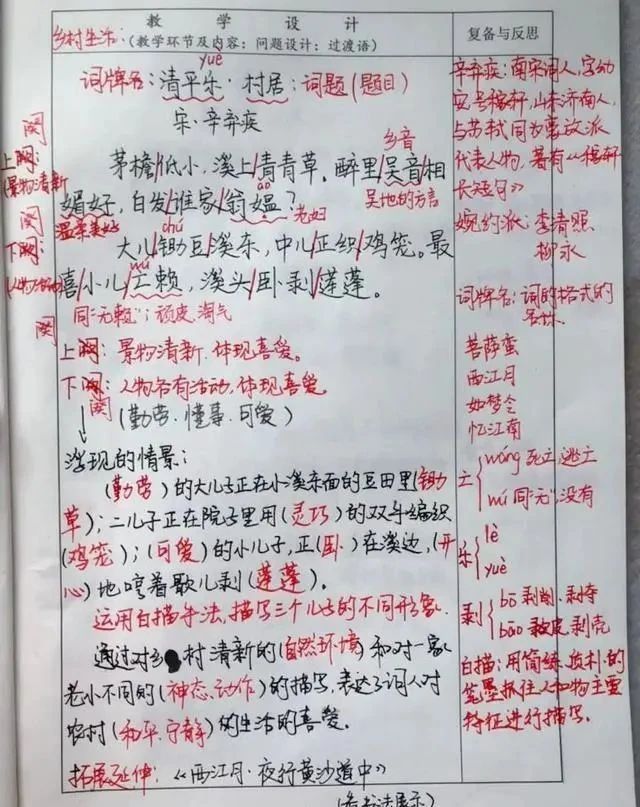 教 学 设 计
(教学环节及内容：问题设计：过渡语)
复备与反思
乡村生活：
yuè
词牌名：清平乐·村居：词题(题目)
宋·辛弃疾
乡音
茅檐/低小，溪上/青青草。醉里/吴音/相
吴地的方言
ǎo
媚好，白发/谁家/翁媪？
老妇
温柔美好
chú
大儿/锄豆/溪东，中儿/正织/鸡笼。最
wú
喜/小儿/亡赖，溪头/卧·剥/莲蓬。
同"无赖"：顽皮、淘气
阕
上阕：
(景物清新
阕
下阕：
阕
上阕：景物清新.体现喜爱。
下阕：人物各有活动，体现喜爱
阕
(勤劳.懂事.可爱)
浮现的情景：
(勤劳)的大儿子正在小溪东面的豆田里(锄
草)；二儿子正在院子里用(灵巧)的双手编织
(鸡笼)；(可爱)的小儿子，正(卧)在溪边，(开
心)地哼着歌儿剥(莲蓬)。
运用白描手法，描写三个儿子的不同形象.
通过对乡村清新的(自然环境)和对一家
老小不同的(神态.动作)的描写，表达了词人对
农村(和平.宁静)的生活的喜爱。
拓展延伸：《西江月·夜行黄沙道中》
辛弃疾：南宋词人，字幼
安，号稼轩，山东济南人，
与苏轼同为豪放派
代表人物，著有《稼轩
长短句》
婉约派：李清照
柳永
词牌名：词的格式的
名称
菩萨蛮
西江月
如梦令
忆江南
亡 wáng 死亡.逃亡
wú 同"无"，没有
乐 lè
yuè
剥 bō 剥削.剥夺
bāo 剥皮.剥壳
白描：用简练、质朴的
笔墨抓住人和物主要
特征进行描写。